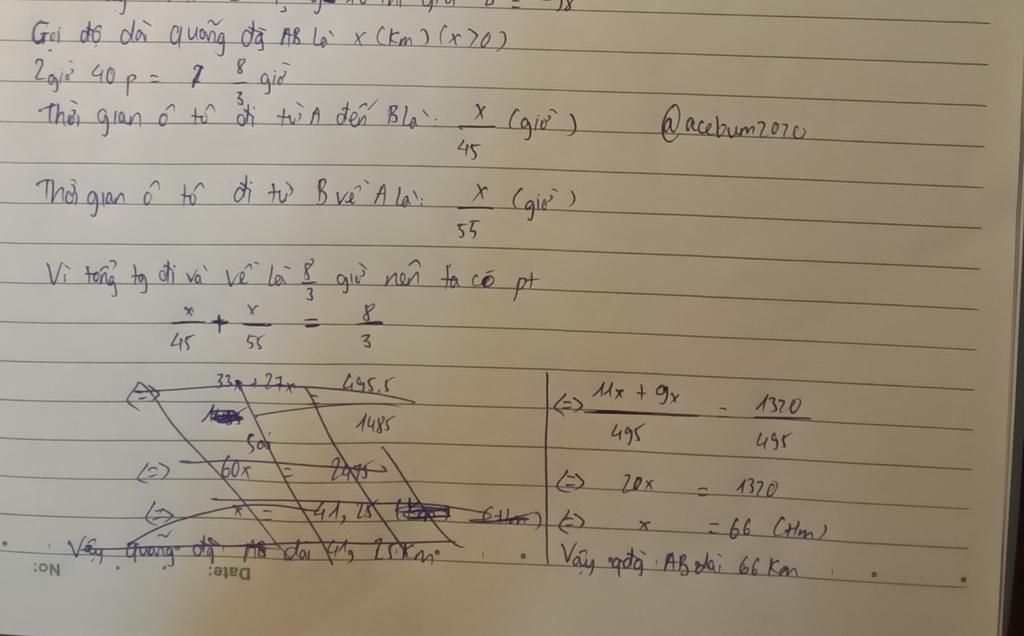 Gọi độ dài quãng đg AB là x (km) (x>0)
2giờ 40 p = 8/3 giờ
Thời gian ô tô đi từ A đến B là: x/45 (giờ)
@acebum2020
Thời gian ô tô đi từ B về A là: x/55 (giờ)
Vì tổng tg đi và về là 8/3 giờ nên ta có pt
x/45 + x/55 = 8/3
(=) 33x + 27x = 495.5
1485
Sai
(=) 60x = 2475
(=) x = 41,25
Vậy quãng đg AB dài 41,25 km
(=) 11x + 9x / 495 = 1320 / 495
(=) 20x = 1320
(=) x = 66 (tm)
Vậy qđg AB dài 66 Km
No:
Date: